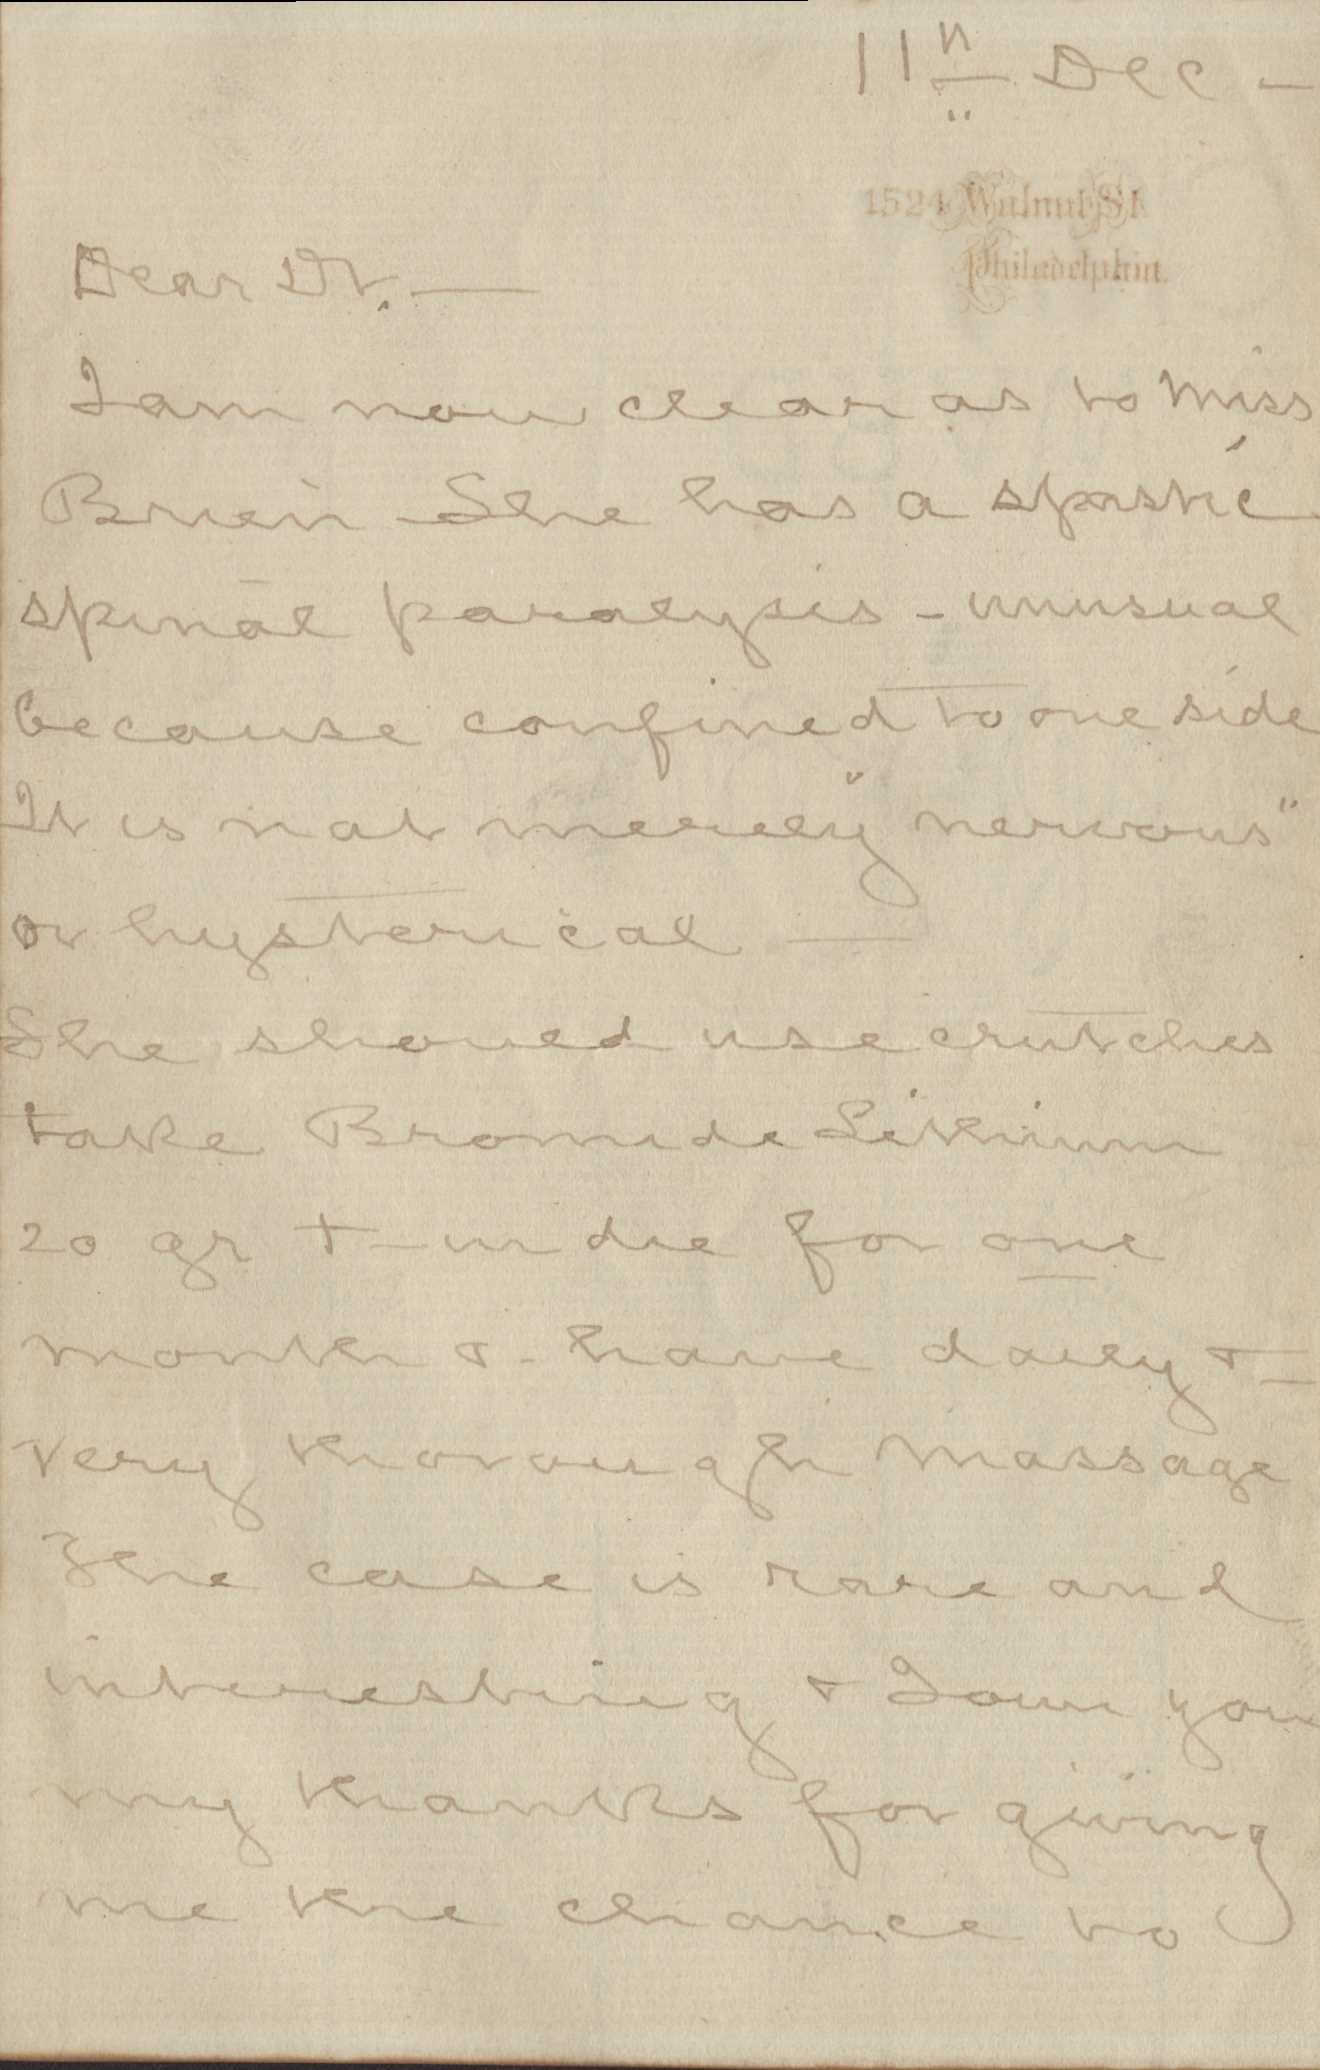 11th Dec —
1524 Walnut St.
Philadelphia.
Dear Dr. —
I am now clear as to Miss
Bruen She has a spastic
spinal paralysis - unusual
because confined to one side
It is not merely "nervous"
or hysterical —
She should use crutches
take Bromide Lithium
20 gr t - in die for one
month & - have daily & -
very thorough massage
The case is rare and
interesting & I owe you
my thanks for giving
me the chance to